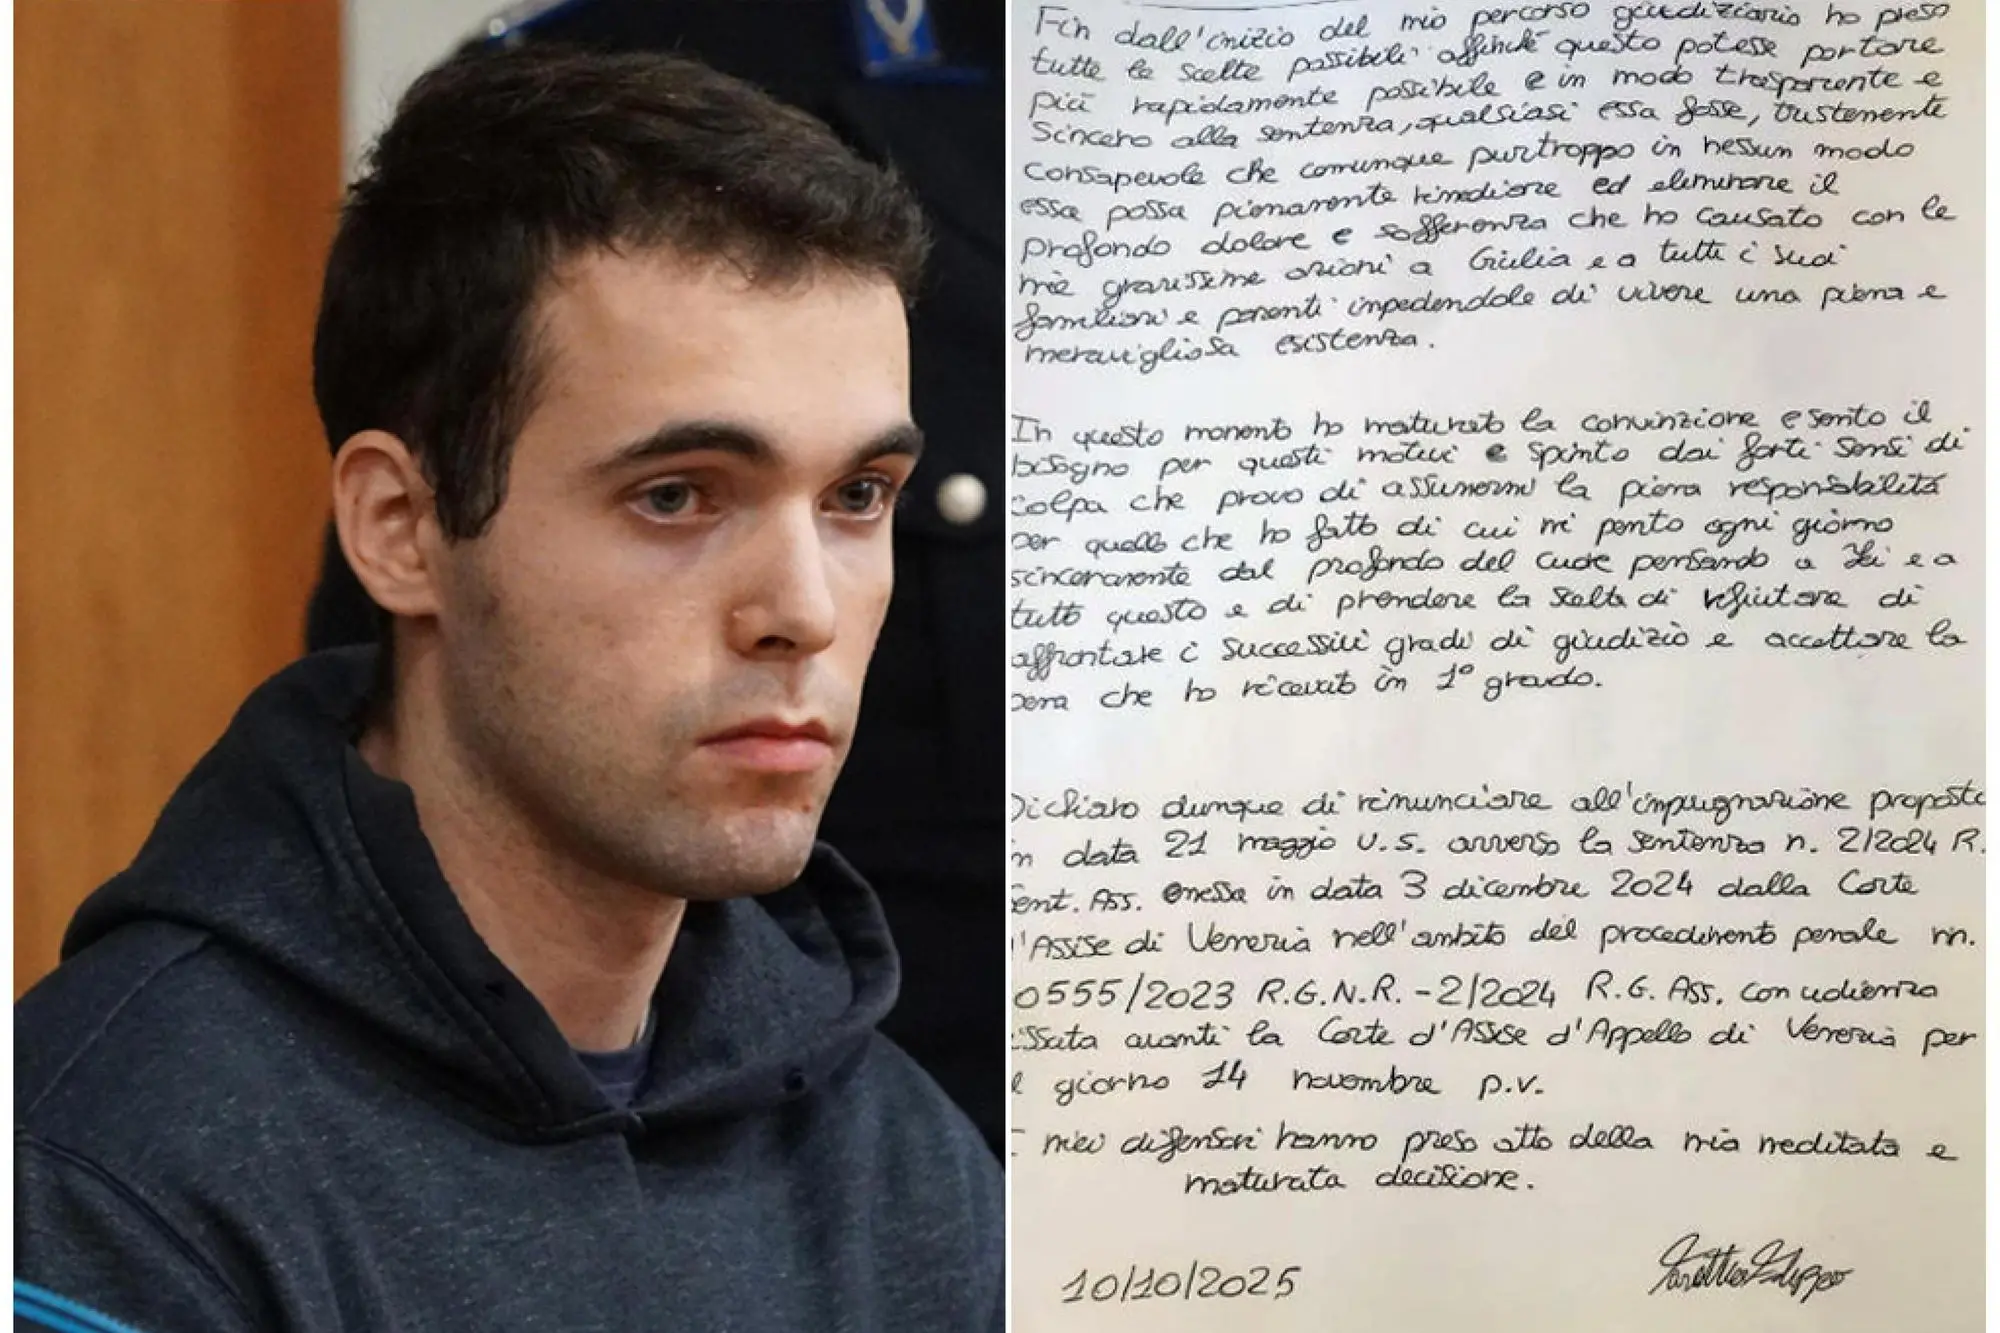 Fin dall'inizio del mio percorso giudiziario ho preso
tutte le scelte possibili affinché questo potesse portare
più rapidamente possibile e in modo trasparente e
sincero alla sentenza, qualsiasi essa fosse, tristemente
consapevole che comunque purtroppo in nessun modo
essa possa pienamente rimediare ed eliminare il
profondo dolore e sofferenza che ho causato con le
mie gravissime azioni a Giulia e a tutti i suoi
familiari e parenti impedendole di vivere una piena e
meravigliosa esistenza.
In questo momento ho maturato la convinzione e sento il
bisogno per questi motivi e spinto dai forti sensi di
colpa che provo di assumermi la piena responsabilità
per quello che ho fatto di cui mi pento ogni giorno
sinceramente dal profondo del cuore pensando a lei e a
tutto questo e di prendere la scelta di rifiutare di
affrontare i successivi gradi di giudizio e accettare la
pena che ho ricevuto in 1° grado.
Dichiaro dunque di rinunciare all'impugnazione proposta
in data 21 maggio u.s. avverso la sentenza n. 2/2024 R.
ent. Ass. emessa in data 3 dicembre 2024 dalla Corte
d'Assise di Venezia nell'ambito del procedimento penale nn.
0555/2023 R.G.N.R. - 2/2024 R.G. Ass. con udienza
issata avanti la Corte d'Assise d'Appello di Venezia per
il giorno 14 novembre p.v.
I miei difensori hanno preso atto della mia meditata e
maturata decisione.
10/10/2025
Turetta Filippo